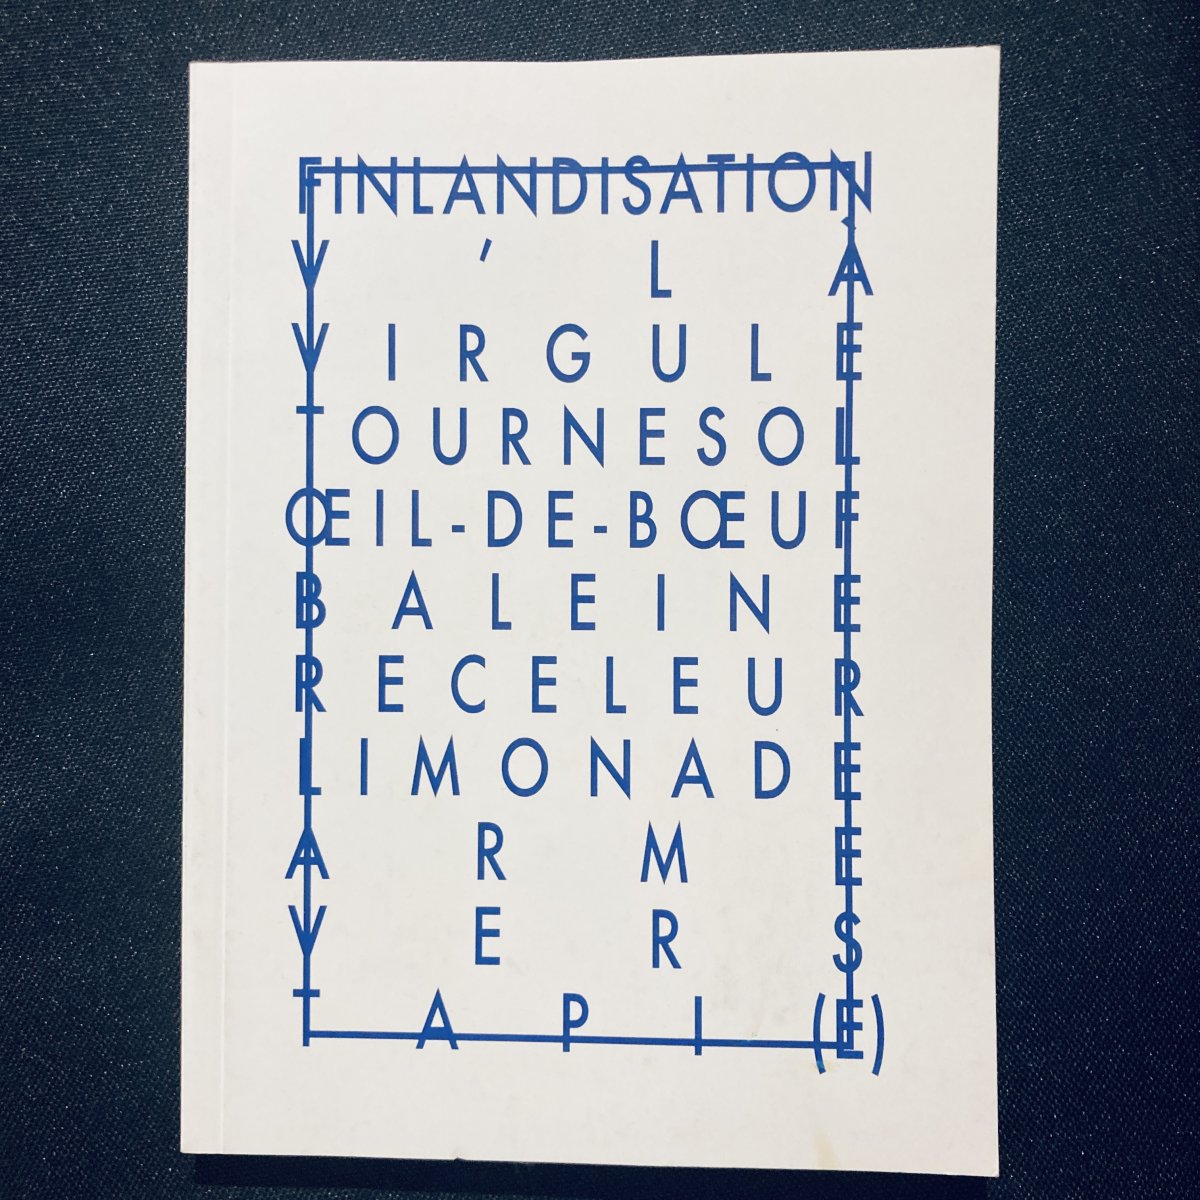 FINLANDISATION
V'LÀ
VIRGULE
TOURNESOL
ŒIL-DE-BŒUF
BALEINE
RECELEUR
LIMONADE
ARME
VERS
TAPI(E)